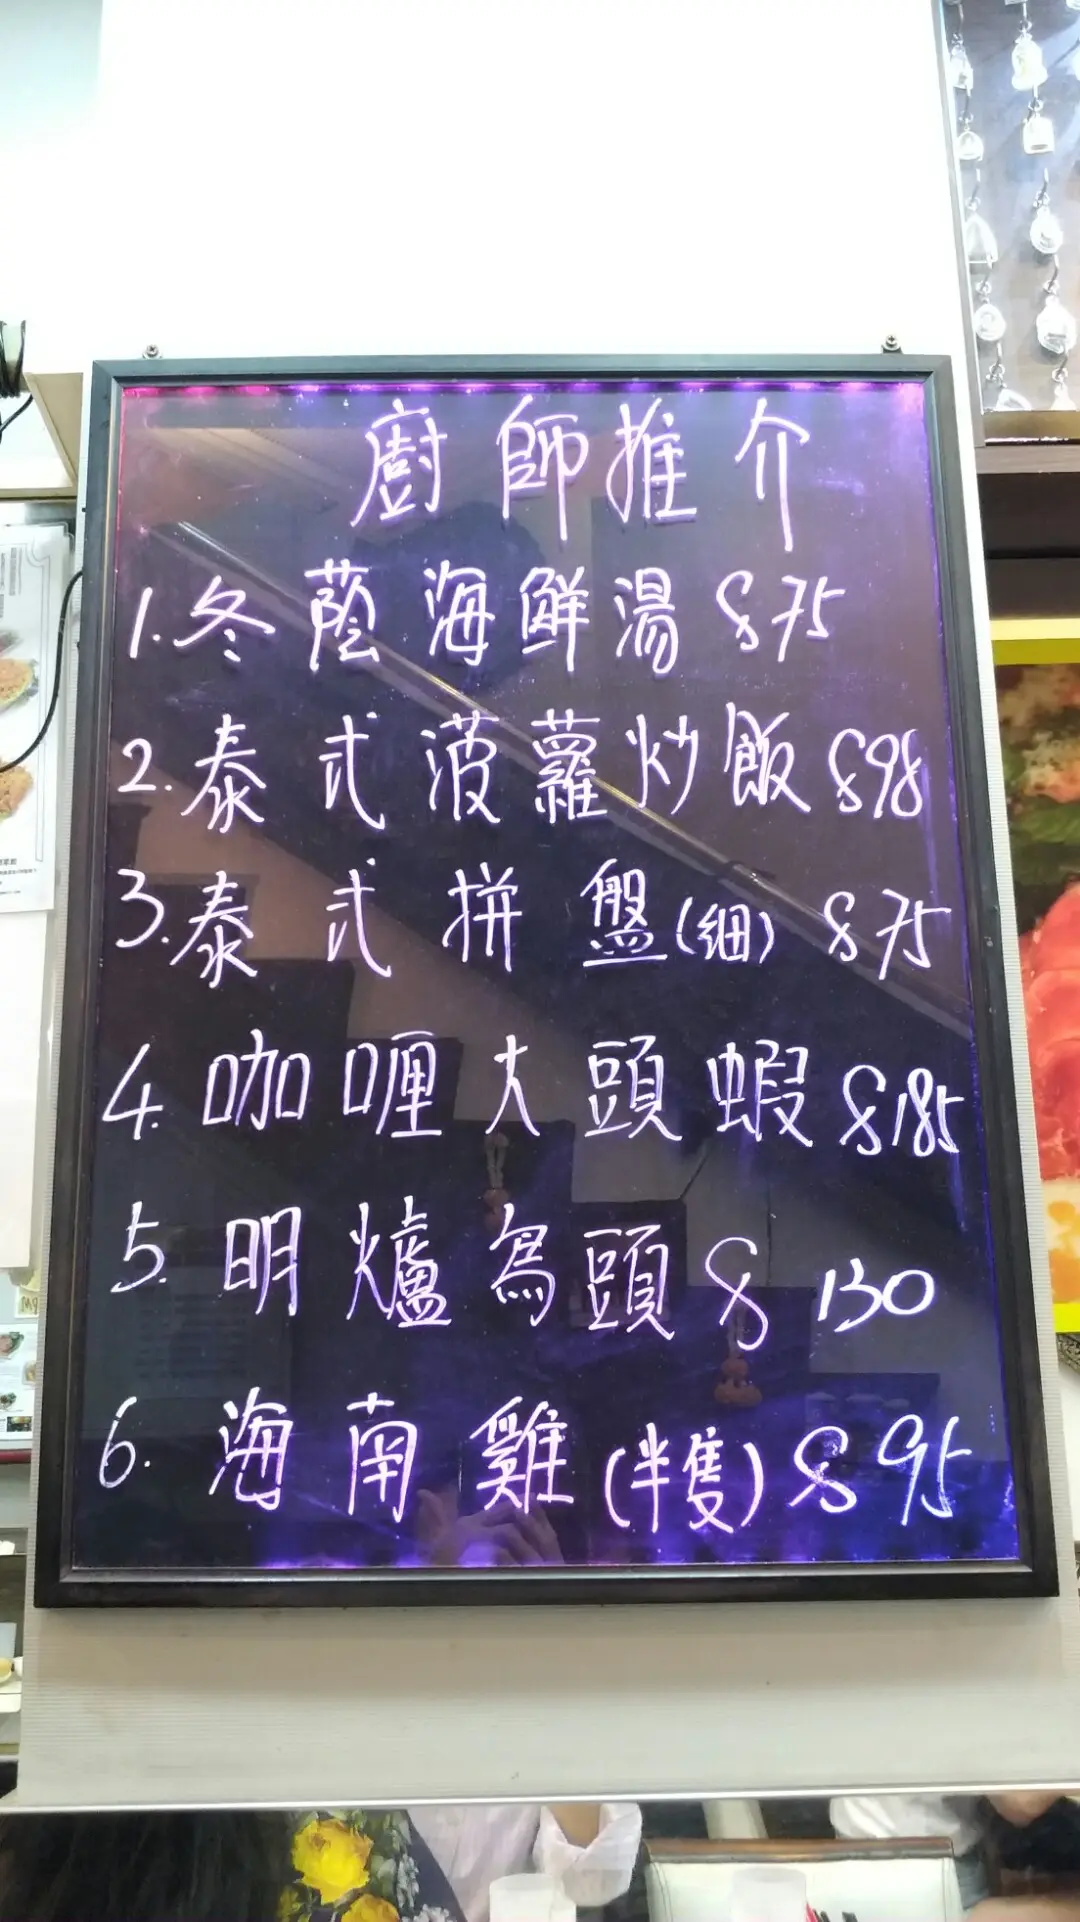 廚師推介
1.冬蔭海鮮湯 $75
2.泰式菠蘿炒飯 $98
3.泰式拼盤(細) $75
4.咖喱大頭蝦 $185
5.明爐烏頭 $130
6.海南雞(半隻) $95